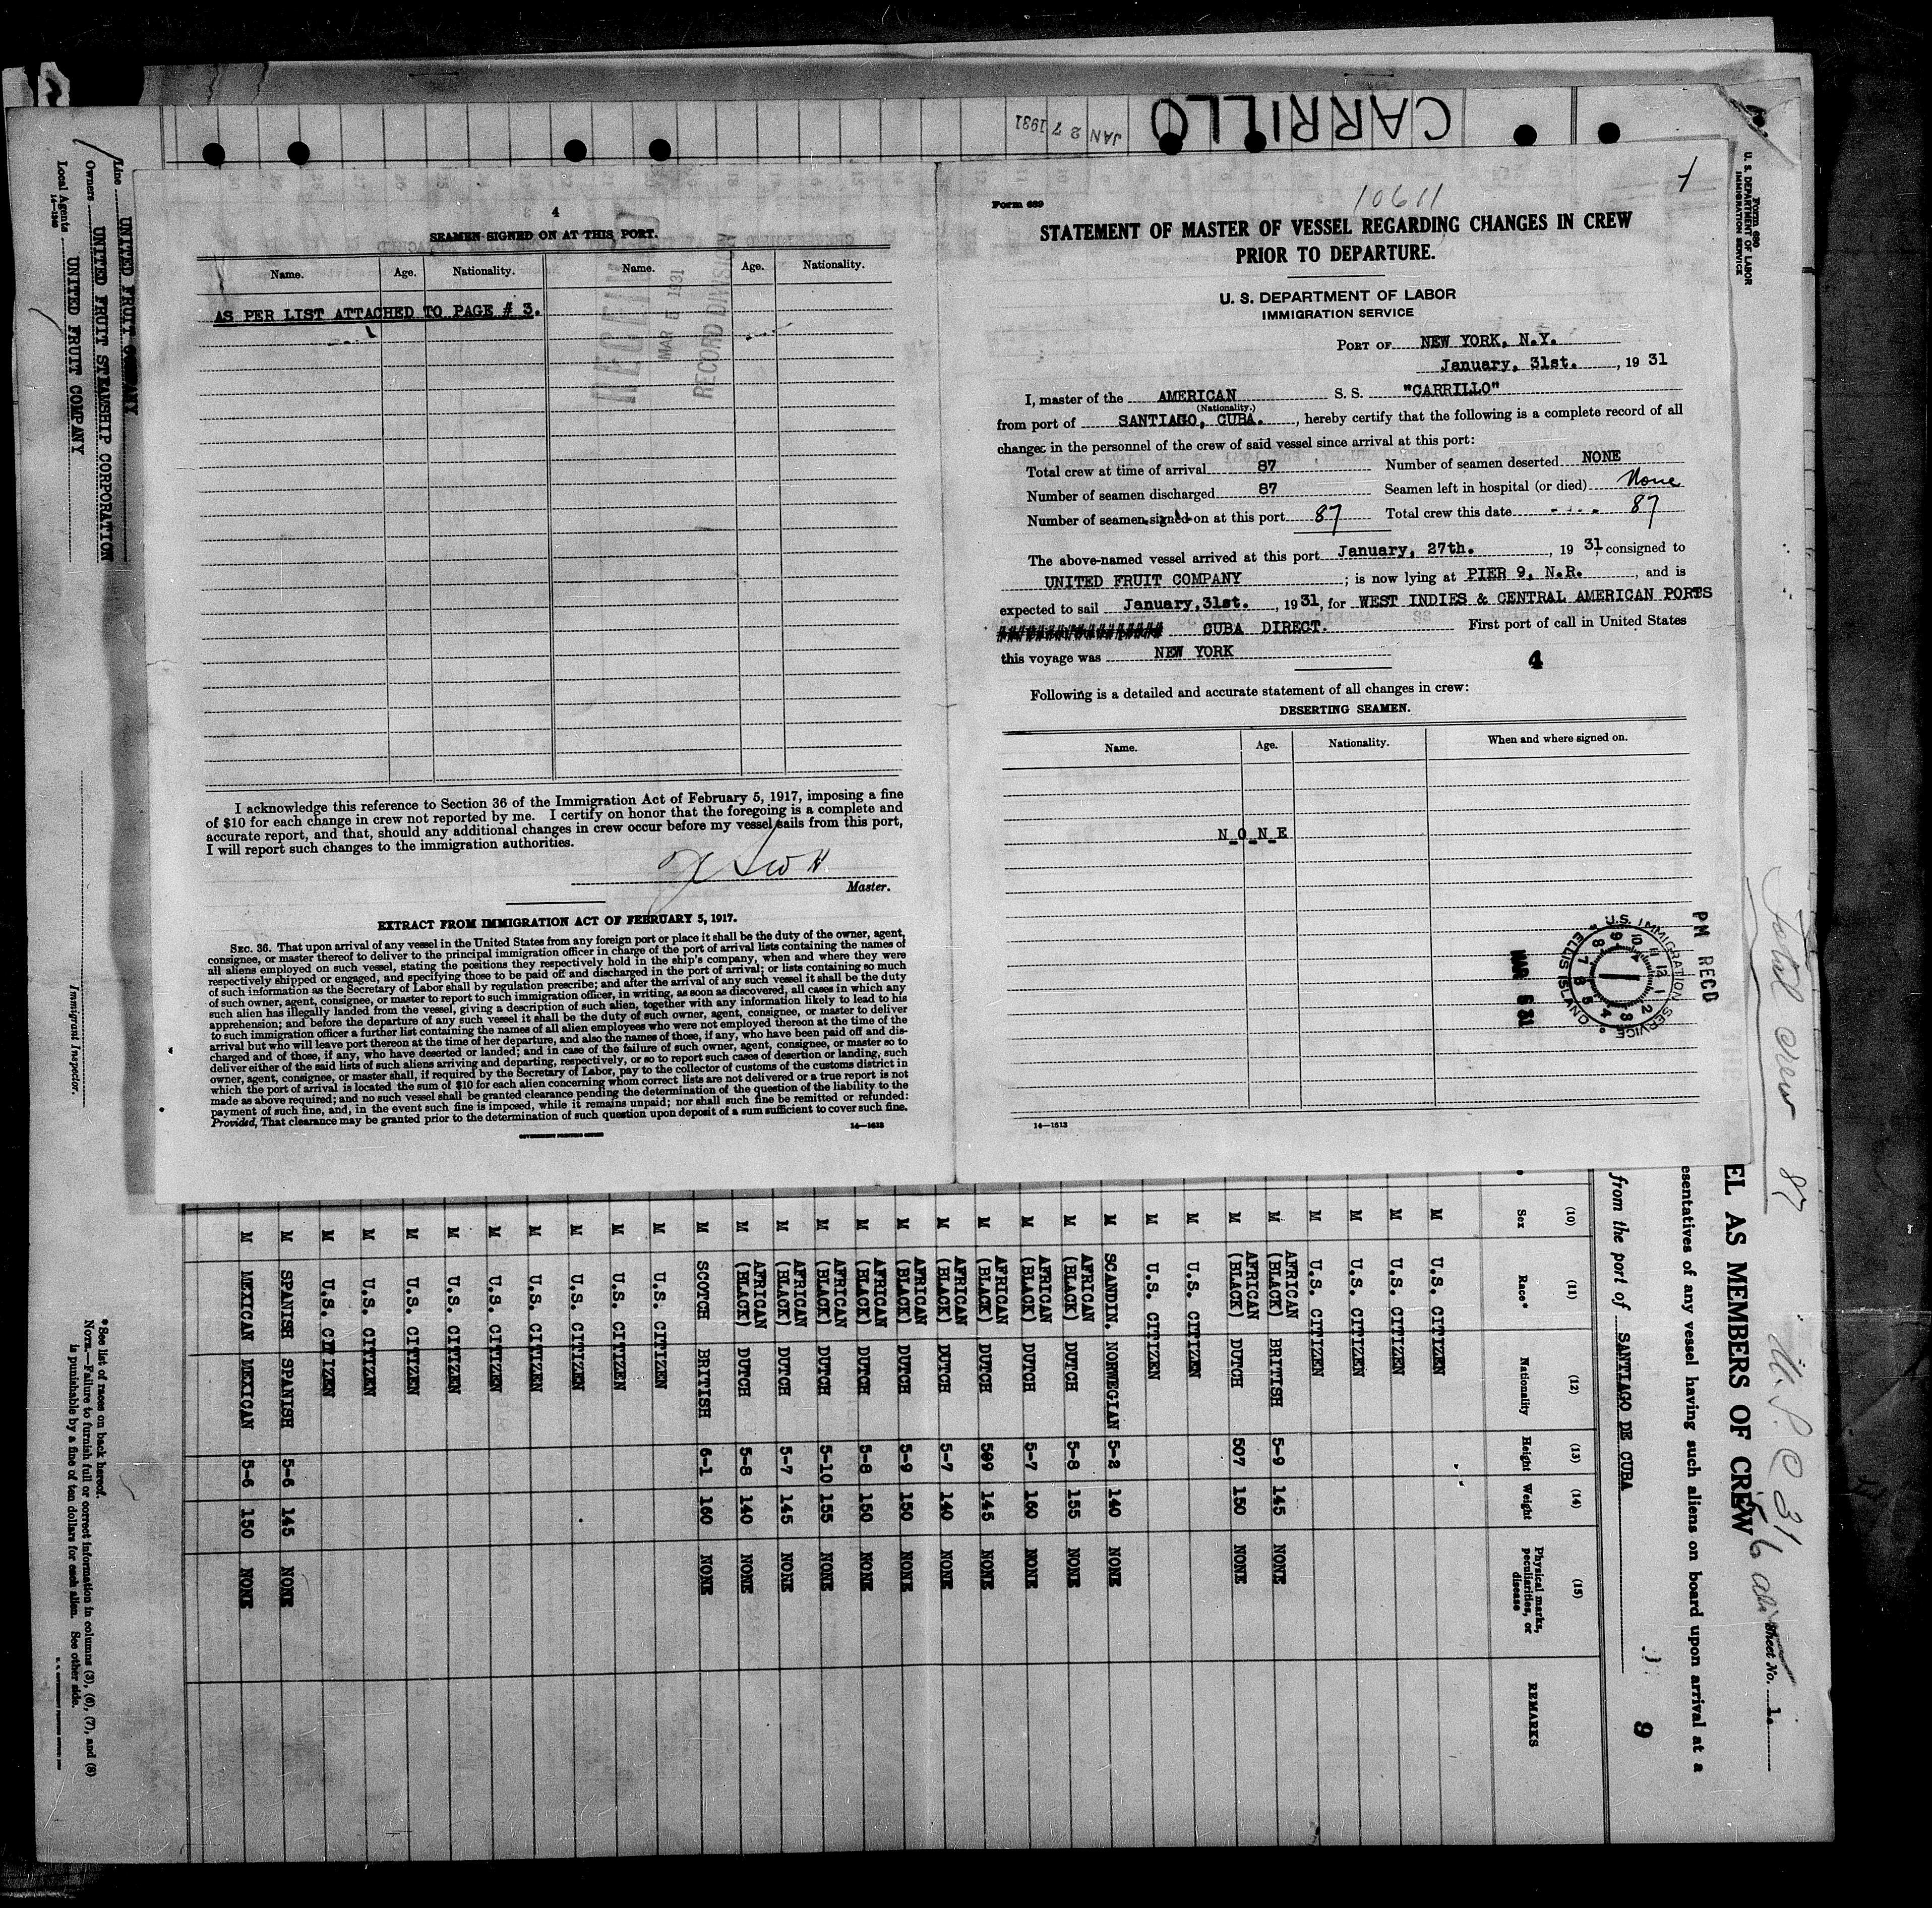 CARRILLO
JAN 27 1931
4
SEAMEN SIGNED ON AT THIS PORT.
Name. Age. Nationality. Name. Age. Nationality.
AS PER LIST ATTACHED TO PAGE # 3.
MAR 5 1931
RECORD DIVISION
I acknowledge this reference to Section 36 of the Immigration Act of February 5, 1917, imposing a fine
of $10 for each change in crew not reported by me. I certify on honor that the foregoing is a complete and
accurate report, and that, should any additional changes in crew occur before my vessel sails from this port,
I will report such changes to the immigration authorities.
Master.
EXTRACT FROM IMMIGRATION ACT OF FEBRUARY 5, 1917.
SEC. 36. That upon arrival of any vessel in the United States from any foreign port or place it shall be the duty of the owner, agent,
consignee, or master thereof to deliver to the principal immigration officer in charge of the port of arrival lists containing the names of
all aliens employed on such vessel, stating the positions they respectively hold in the ship's company, when and where they were
respectively shipped or engaged, and specifying those to be paid off and discharged in the port of arrival; or lists containing so much
of such information as the Secretary of Labor shall by regulation prescribe; and after the arrival of any such vessel it shall be the duty
of such owner, agent, consignee, or master to report to such immigration officer, in writing, as soon as discovered, all cases in which any
such alien has illegally landed from the vessel, giving a description of such alien, together with any information likely to lead to his
apprehension; and before the departure of any such vessel it shall be the duty of such owner, agent, consignee, or master to deliver
to such immigration officer a further list containing the names of all alien employees who were not employed thereon at the time of the
arrival but who will leave port thereon at the time of her departure, and also the names of those, if any, who have been paid off and dis-
charged and of those, if any, who have deserted or landed; and in case of the failure of such owner, agent, consignee, or master so to
deliver either of the said lists of such aliens arriving and departing, respectively, or so to report such cases of desertion or landing, such
owner, agent, consignee, or master shall, if required by the Secretary of Labor, pay to the collector of customs of the customs district in
which the port of arrival is located the sum of $10 for each alien concerning whom correct lists are not delivered or a true report is not
made as above required; and no such vessel shall be granted clearance pending the determination of the question of the liability to the
payment of such fine, and, in the event such fine is imposed, while it remains unpaid; nor shall such fine be remitted or refunded:
Provided, That clearance may be granted prior to the determination of such question upon deposit of a sum sufficient to cover such fine.
GOVERNMENT PRINTING OFFICE 14—1613
10611
Form 689
STATEMENT OF MASTER OF VESSEL REGARDING CHANGES IN CREW
PRIOR TO DEPARTURE.
U. S. DEPARTMENT OF LABOR
IMMIGRATION SERVICE
PORT OF NEW YORK, N.Y.
January, 31st. , 19 31
I, master of the AMERICAN S. S. "CARRILLO"
(Nationality.)
from port of SANTIAGO, CUBA. , hereby certify that the following is a complete record of all
changes in the personnel of the crew of said vessel since arrival at this port:
Total crew at time of arrival 87 Number of seamen deserted NONE
Number of seamen discharged 87 Seamen left in hospital (or died) None
Number of seamen signed on at this port 87 Total crew this date 87
The above-named vessel arrived at this port January, 27th. , 19 31, consigned to
UNITED FRUIT COMPANY ; is now lying at PIER 9, N.R. , and is
expected to sail January, 31st. , 19 31, for WEST INDIES & CENTRAL AMERICAN PORTS
CUBA DIRECT. First port of call in United States
this voyage was NEW YORK 4
Following is a detailed and accurate statement of all changes in crew:
DESERTING SEAMEN.
Name. Age. Nationality. When and where signed on.
N O N E
U.S. IMMIGRATION SERVICE ELLIS ISLAND
MAR 5 31
PM RECD
14—1613
Line UNITED FRUIT COMPANY
Owners UNITED FRUIT STEAMSHIP CORPORATION
Local Agents UNITED FRUIT COMPANY
14—1240
Immigrant Inspector.
Form 680
U. S. DEPARTMENT OF LABOR
IMMIGRATION SERVICE
Total crew 87
U.S.C 31
Sheet No. 1.
EL AS MEMBERS OF CREW
esentatives of any vessel having such aliens on board upon arrival at a
from the port of SANTIAGO DE CUBA 9
(10) (11) (12) (13) (14) (15)
Sex Race* Nationality Height Weight Physical marks, peculiarities, or disease REMARKS
M U.S. CITIZEN
M U.S. CITIZEN
M U.S. CITIZEN
M U.S. CITIZEN
M AFRICAN (BLACK) BRITISH 5-9 145 NONE
M AFRICAN (BLACK) DUTCH 507 150 NONE
M U.S. CITIZEN
M U.S. CITIZEN
M SCANDIN. NORWEGIAN 5-2 140 NONE
M AFRICAN (BLACK) DUTCH 5-8 155 NONE
M AFRICAN (BLACK) DUTCH 5-7 160 NONE
M AFRICAN (BLACK) DUTCH 509 145 NONE
M AFRICAN (BLACK) DUTCH 5-7 140 NONE
M AFRICAN (BLACK) DUTCH 5-9 150 NONE
M AFRICAN (BLACK) DUTCH 5-8 150 NONE
M AFRICAN (BLACK) DUTCH 5-10 155 NONE
M AFRICAN (BLACK) DUTCH 5-7 145 NONE
M AFRICAN (BLACK) DUTCH 5-8 140 NONE
M SCOTCH BRITISH 6-1 160 NONE
M U.S. CITIZEN
M U.S. CITIZEN
M U.S. CITIZEN
M U.S. CITIZEN
M U.S. CITIZEN
M U.S. CITIZEN
M U.S. CITIZEN
M U.S. CITIZEN
M U.S. CITIZEN
M SPANISH SPANISH 5-6 145 NONE
M MEXICAN MEXICAN 5-6 150 NONE
*See list of races on back hereof.
NOTE.—Failure to furnish full or correct information in columns (3), (6), (7), and (8)
is punishable by a fine of ten dollars for each alien. See other side.